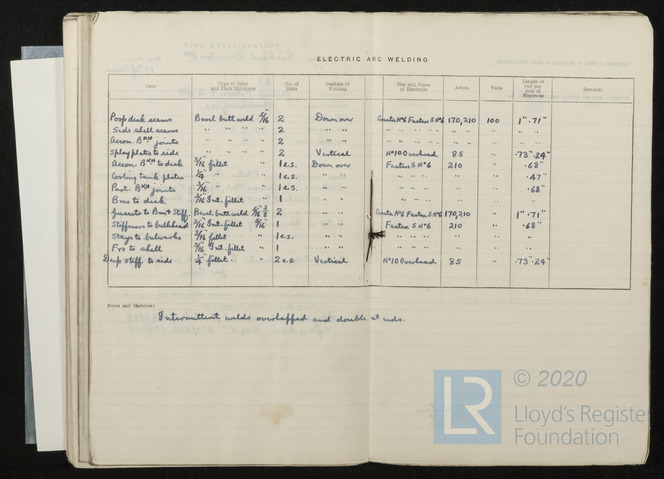 ELECTRIC ARC WELDING
Item Type of Joint and Plate Thickness No. of Runs Position of Welding Size and Name of Electrode Amps. Volts Length of run per inch of Electrode Remarks
Poop deck seams Bevil butt weld 5/16" 2 Down over No 6 Fastex 5 No 6 170,210 100 1" .71"
Side shell seams " " " " 2 " " " " " " " " "
Accom. Bkh joints " " " " 2 " " " " " " " "
Splay plates to side " " " " 2 Vertical No 10 Overhead 85 " .73" .24"
Accom. Bkh to deck 3/16 fillet " 1 e.s. Down over Fastex 5 No 6 210 " .68"
Cooling tank plates 1/4 " " 1 e.s. " " " " " " .47"
Part. Bkh joints 3/16 " " 1 e.s. " " " " " " .68"
Bms to deck 3/16 Int. fillet " 1 " " " " " " " "
Gussets to Bms & Stiff. Bevil butt weld 5/16" 3/8" 2 " " No 6 Fastex 5 No 6 170,210 " 1" .71"
Stiffeners to bulkhead 3/16 Int. fillet 5/16" 1 " " Fastex 5 No 6 210 " .68"
Stays to bulwarks 3/16 fillet " 1 e.s. " " " " " " " "
Frs to shell 3/16 Int. fillet " 1 " " " " " " " "
Deep stiff. to side 1/4" fillet. " 2 e.s. Vertical No 10 Overhead 85 " .73" .24"
Notes and Sketches:
Intermittent welds overlapped and double at ends.
© 2020
LR
Lloyd's Register
Foundation